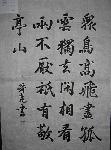 衆鳥高飛盡孤
雲獨去閑相看
兩不厭祇有敬
亭山